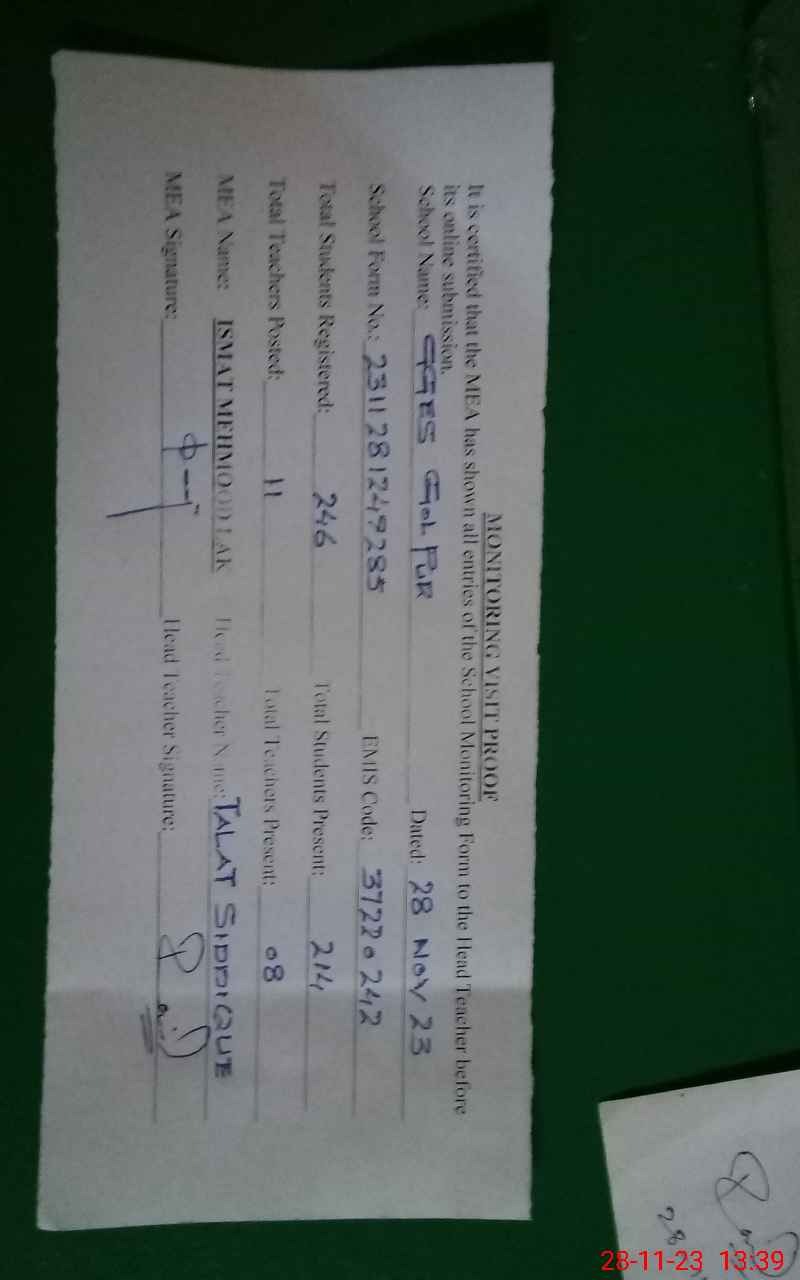 MONITORING VISIT PROOF
It is certified that the MEA has shown all entries of the School Monitoring Form to the Head Teacher before
its online submission.
School Name: GGES Gol PUR Dated: 28 NOV 23
School Form No.: 231128124928 5 EMIS Code: 37220242
Total Students Registered: 246 Total Students Present: 214
Total Teachers Posted: 11 Total Teachers Present: 08
MEA Name: ISMAT MEHMOOD LAK Head Teacher Name: TALAT SIDDIQUE
MEA Signature: Head Teacher Signature:
28
28-11-23 13:39